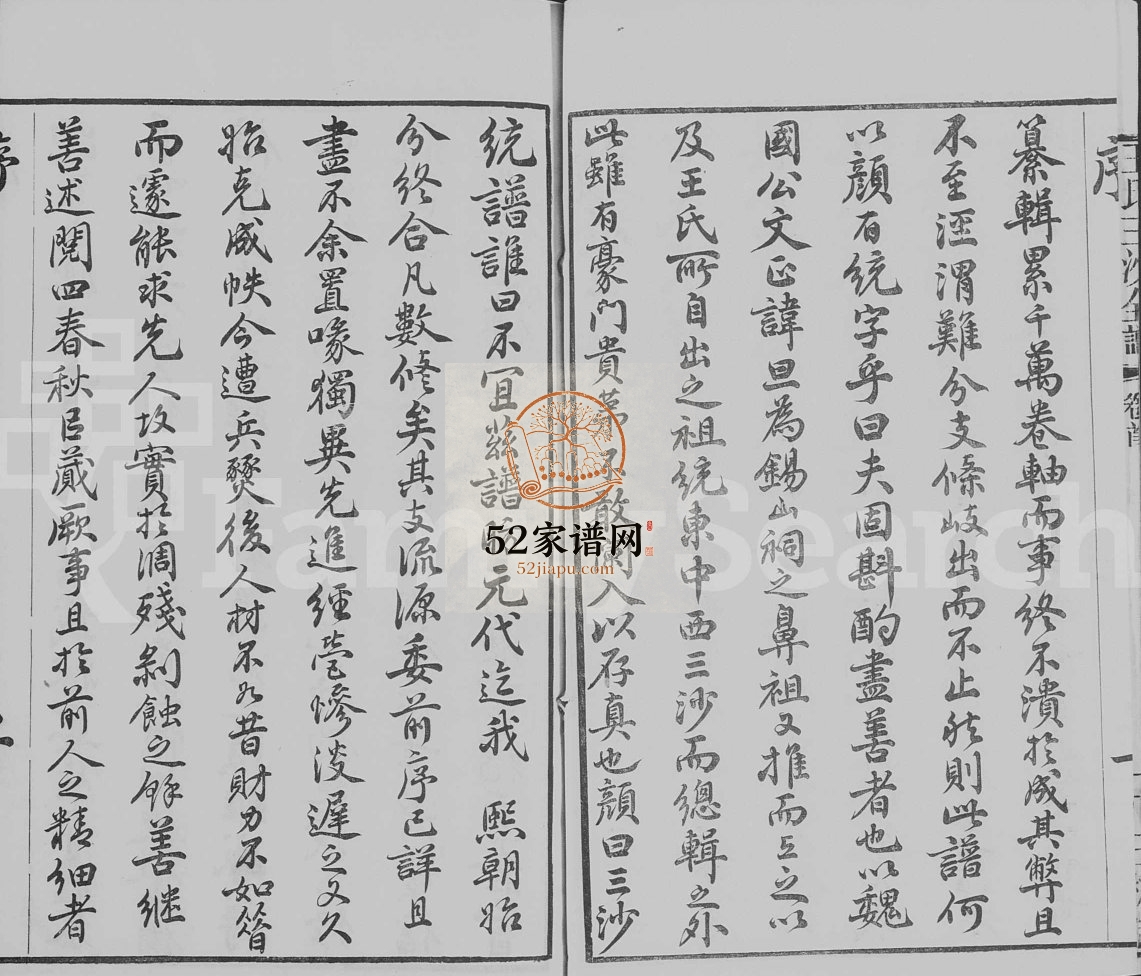 序
纂輯累千萬卷軸而事終不潰於成其弊且
不至涇渭難分支條岐出而不止然則此譜何
以顏有統字乎曰夫固斟酌盡善者也以魏
國公文正諱旦為錫山祠之鼻祖又推而上之以
及王氏所自出之祖統東中西三沙而總輯之外
此雖有豪門貴 不敢 入以存真也顏曰三沙
統譜誰曰不宜茲譜 元代迄我 熙朝始
分終合凡數修矣其支流源委前序已詳且
盡不余置喙獨異先進經營慘淡遲之又久
始克成帙今遭兵燹後人材不及昔財力不如簪
而遽能求先人故實於凋殘剝蝕之餘善繼
善述閱四春秋吕蕆厥事且於前人之精細者
序
52家谱网
52jiapu.com
FamilySearch